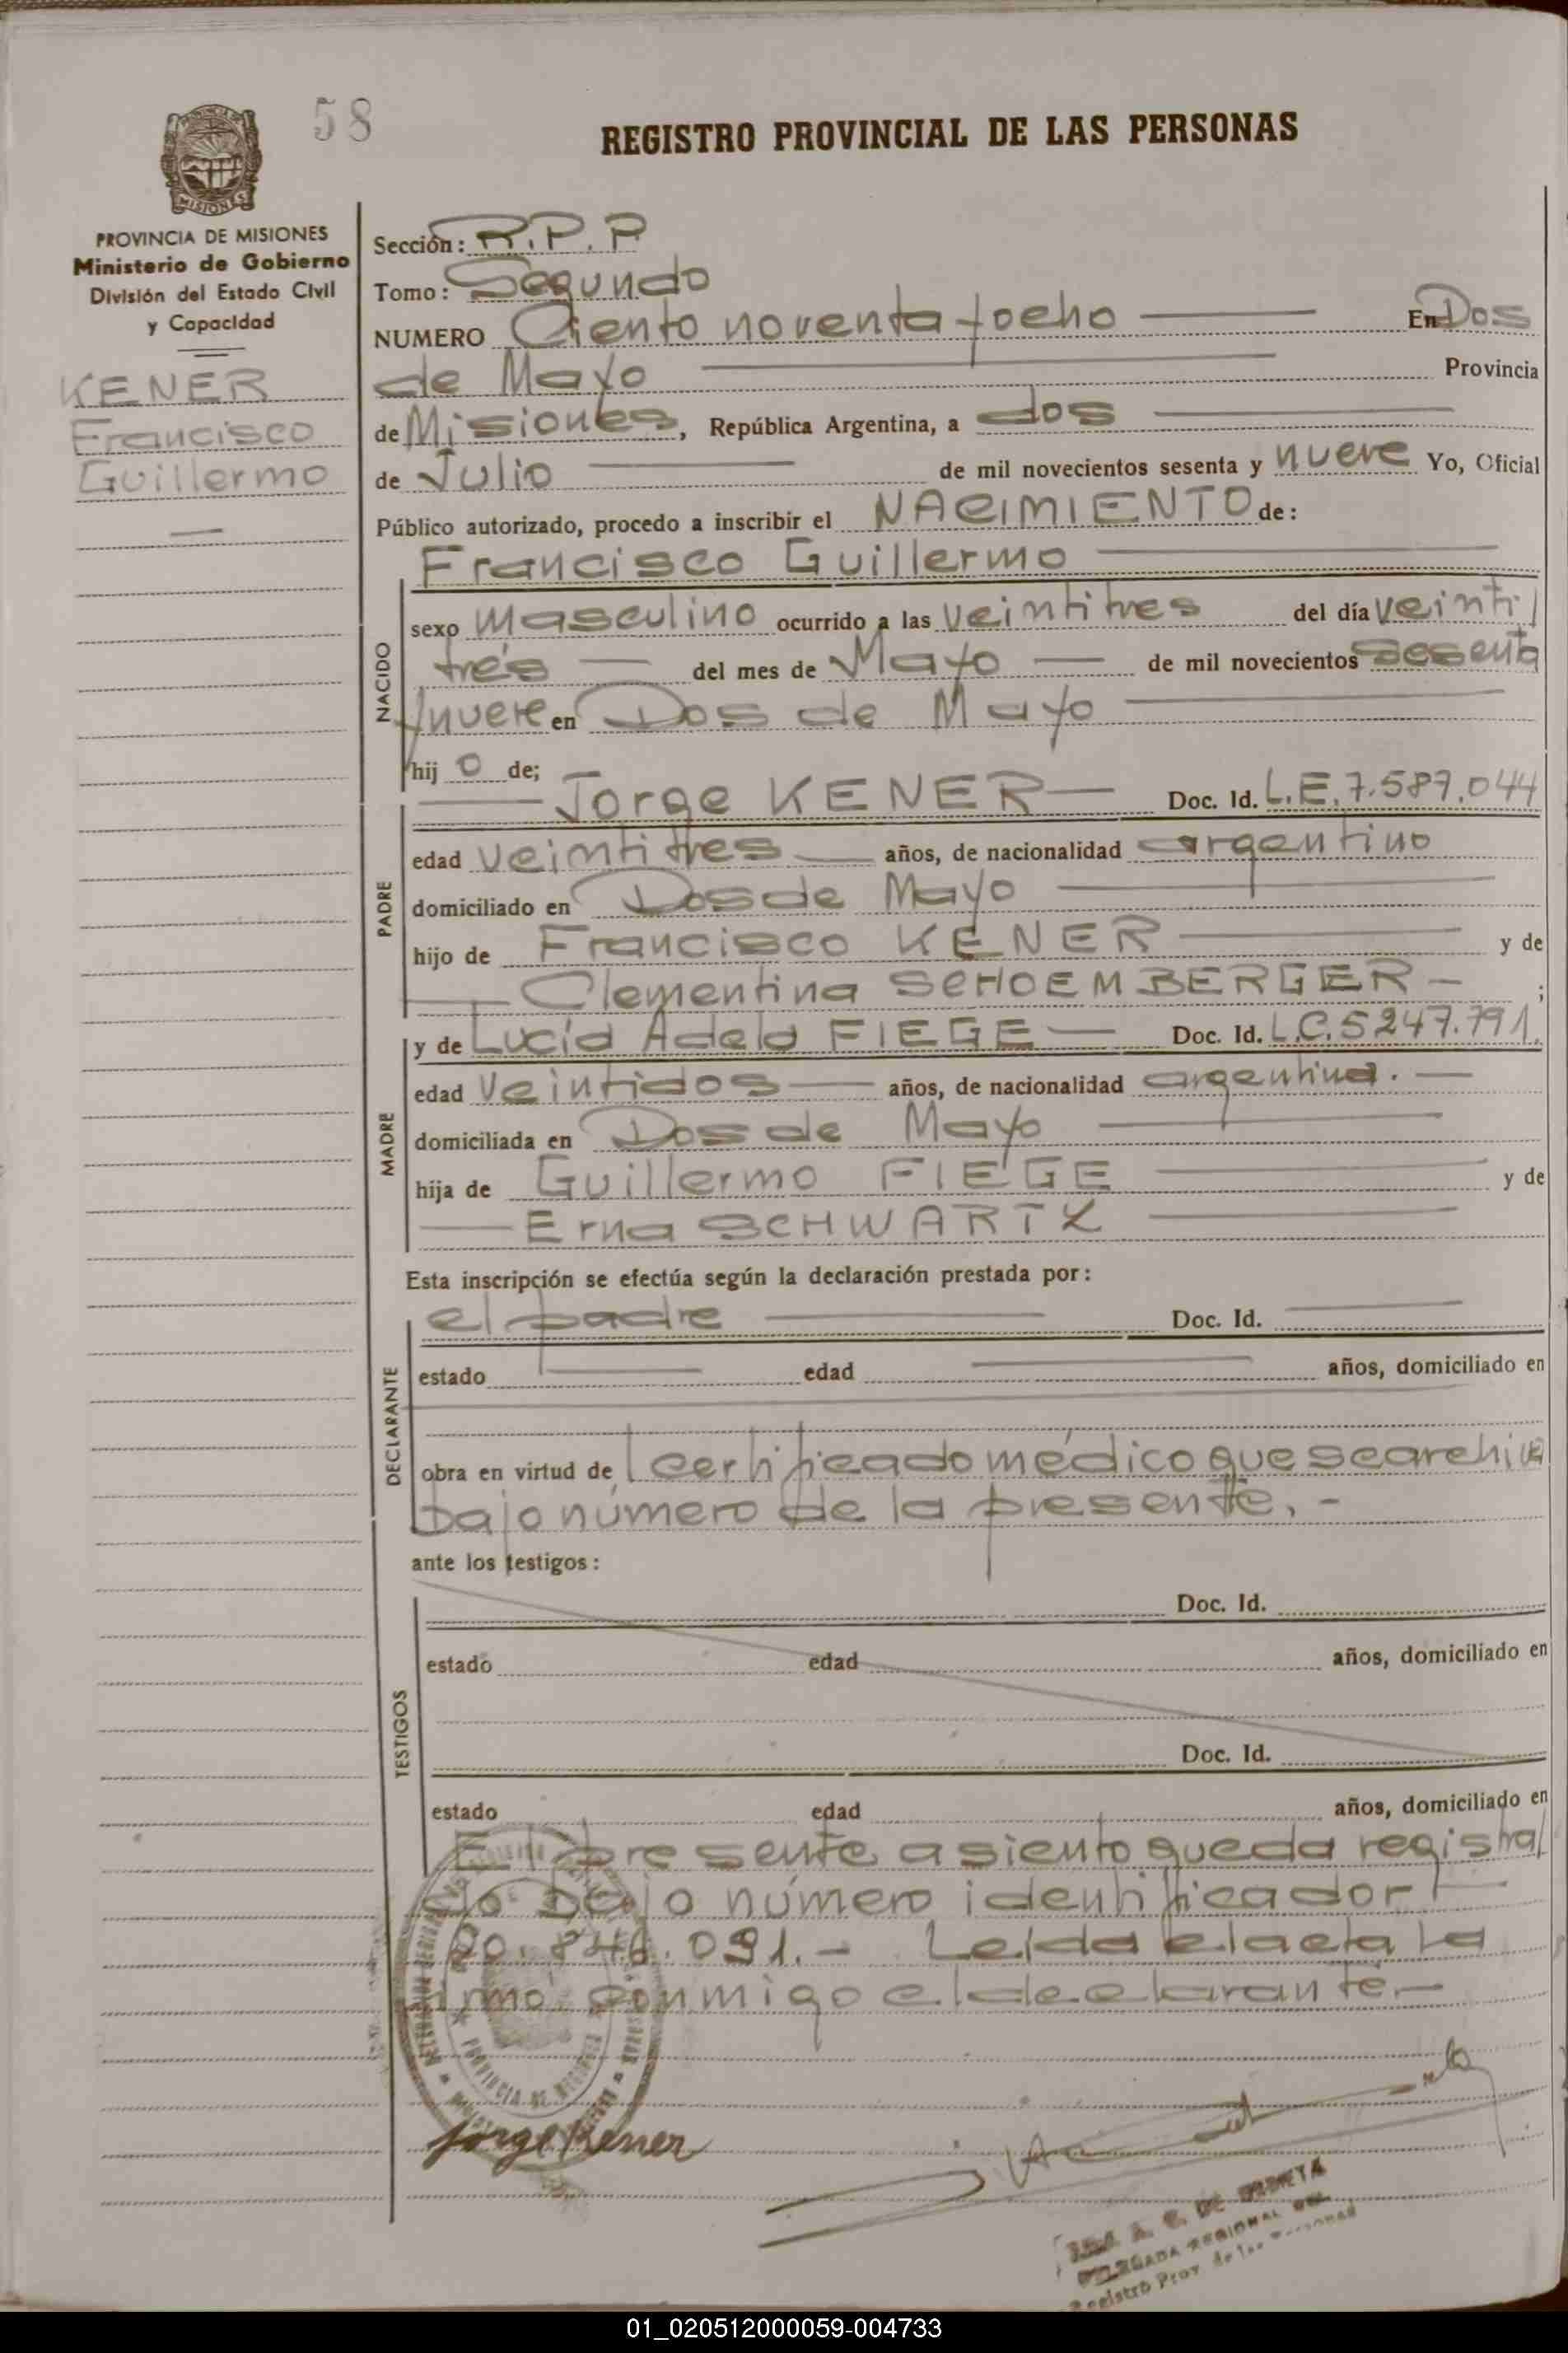 58
REGISTRO PROVINCIAL DE LAS PERSONAS
MISIONES
PROVINCIA DE MISIONES
Ministerio de Gobierno
División del Estado Civil
y Capacidad
KENER
Francisco
Guillermo
Sección: R.P.P
Tomo: Segundo
NUMERO Ciento noventa y ocho En Dos
de Mayo Provincia
de Misiones, República Argentina, a dos
de Julio de mil novecientos sesenta y nueve Yo, Oficial
Público autorizado, procedo a inscribir el NACIMIENTO de:
Francisco Guillermo
NACIDO
sexo masculino ocurrido a las veintitres del día veinti
trés del mes de Mayo de mil novecientos sesenta
y nueve en Dos de Mayo
hij o de;
Jorge KENER Doc. Id. L.E.7.587.044
PADRE
edad veintitres años, de nacionalidad argentino
domiciliado en Dos de Mayo
hijo de Francisco KENER y de
Clementina SCHOEMBERGER ;
y de Lucía Adela FIEGE Doc. Id. L.C.5247.791.
MADRE
edad veintidos años, de nacionalidad argentina.
domiciliada en Dos de Mayo
hija de Guillermo FIEGE y de
Erna SCHWARTZ
Esta inscripción se efectúa según la declaración prestada por:
el padre Doc. Id.
DECLARANTE
estado edad años, domiciliado en
obra en virtud de l certificado médico que se archiva
bajo número de la presente.-
ante los testigos:
TESTIGOS
Doc. Id.
estado edad años, domiciliado en
Doc. Id.
estado edad años, domiciliado en
El presente asiento queda registra
do bajo número identificador
20.846.091.- Leída el acta la
firmó conmigo el declarante.-
PROVINCIA DE MISIONES
Jorge Kener
A. C. DE URRIETA
DELEGADA REGIONAL DEL
Registro Prov. de las Personas
01_020512000059-004733